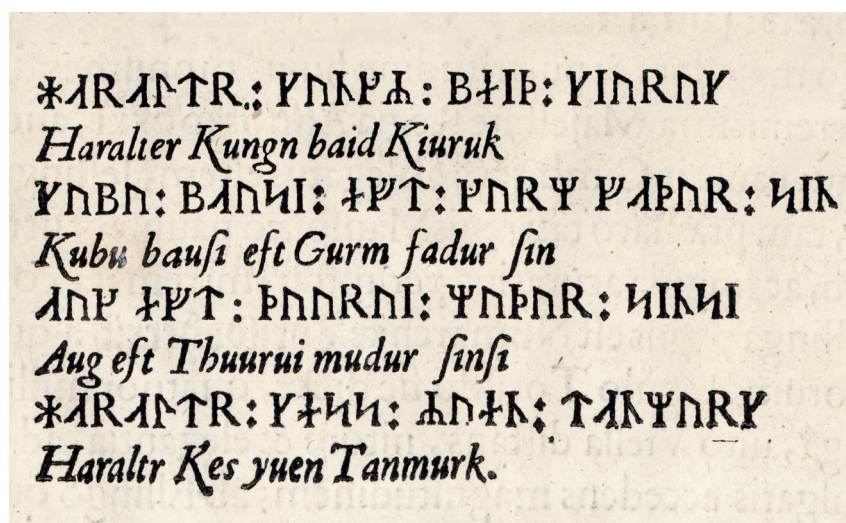 ᚼᛆᚱᛆᛚᛏᚱ.: ᚴᚢᚾᚵᛦ: ᛒᛅᛁᚦ: ᚴᛁᚢᚱᚢᚴ
Haralter Kungn baid Kiuruk
ᚴᚢᛒᚢ: ᛒᛆᚢᛋᛁ: ᛅᚠᛏ: ᚵᚢᚱᛘ ᚠᛆᚦᚢᚱ: ᛋᛁᚾ
Kubu bauſi eft Gurm fadur ſin
ᛆᚢᚵ ᛅᚠᛏ: ᚦᚢᚢᚱᚢᛁ: ᛘᚢᚦᚢᚱ: ᛋᛁᚾᛋᛁ
Aug eft Thuurui mudur ſinſi
ᚼᛆᚱᛆᛚᛏᚱ: ᚴᛅᛋᛋ: ᛦᚢᛅᚾ: ᛏᛆᚾᛘᚢᚱᚴ
Haraltr Kes yuen Tanmurk.